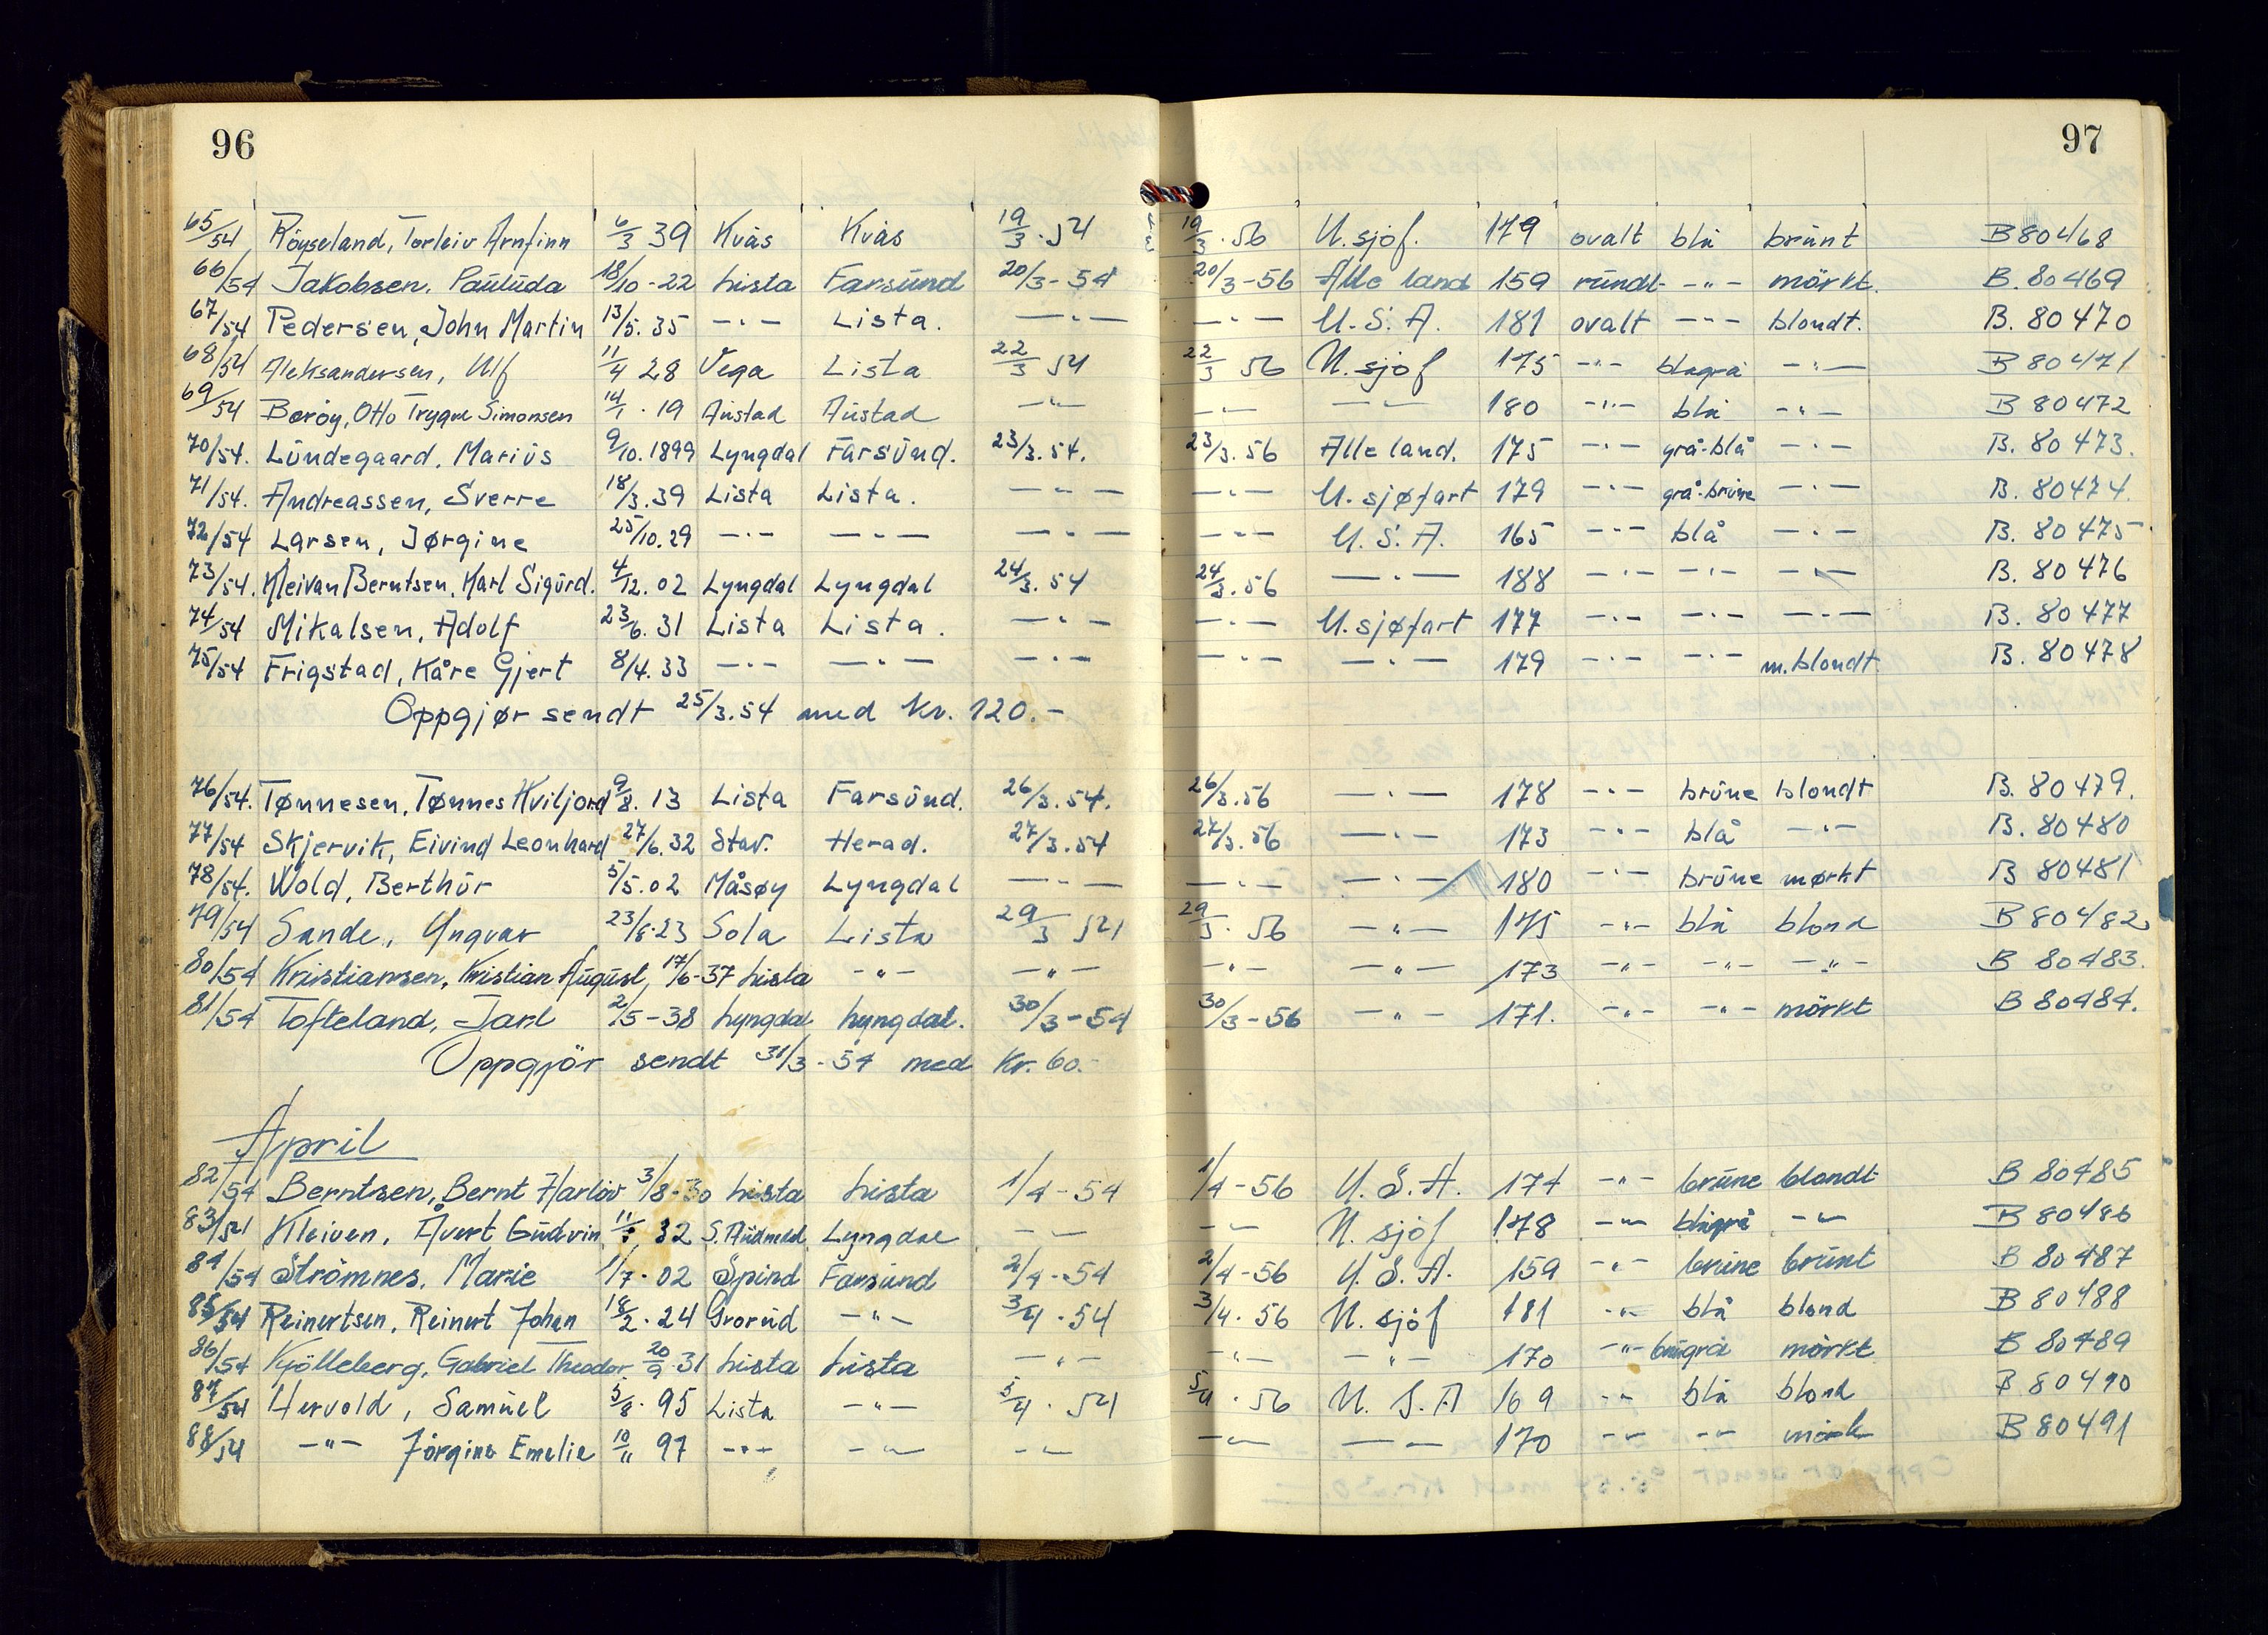 96
97
65/54 Röyseland, Torleiv Arnfinn 6/3 39 Kvås Kvås 19/3 . 54 19/3 . 56 U. sjöf. 179 ovalt blå brunt B 80468
66/54 Jakobsen, Paulüda 18/10 - 22 Lista Farsund 20/3 - 54 20/3 - 56 Alle land 159 rundt -"- mörkt. B. 80469
67/54 Pedersen, John Martin 13/5. 35 -"- Lista. -"- -"- U. S. A. 181 ovalt -"- blondt. B. 80470
68/54 Aleksandersen, Ulf 11/4 28 Vega Lista 22/3 54 22/3 56 U. sjöf 175 -"- blågrå -"- B 80471
69/54 Boröy, Otto Trygve Simonsen 14/1 . 19 Austad Austad -"- -"- -"- 180 -"- blå -"- B 80472
70/54. Lundegaard, Marius 9/10. 1899 Lyngdal Farsund. 23/3. 54. 23/3. 56 Alle land. 175 -"- grå-blå -"- B. 80473.
71/54. Andreassen, Sverre 18/3. 39 Lista Lista. -"- -"- U. sjøfart 179 -"- grå-brune -"- B. 80474.
72/54 Larsen, Jørgine 25/10. 29 -"- -"- -"- -"- U. S. A. 165 -"- blå -"- B. 80475
73/54. Kleivan Berntsen, Karl Sigurd. 4/12. 02 Lyngdal Lyngdal 24/3. 54 24/3. 56 -"- 188 -"- -"- -"- B. 80476
74/54 Mikalsen, Adolf 23/6. 31 Lista Lista. -"- -"- U. sjøfart 177 -"- -"- -"- B. 80477
75/54 Frigstad, Kåre Gjert 8/4. 33 -"- -"- -"- -"- -"- 179 -"- -"- m. blondt. B. 80478
Oppgjør sendt 25/3. 54 med kr. 120.-
76/54. Tønnesen, Tønnes Kviljord 9/8. 13 Lista Farsund. 26/3. 54. 26/3. 56 -"- 178 -"- brune blondt B. 80479.
77/54 Skjervik, Eivind Leonhard 27/6. 32 Stav. Herad. 27/3. 54 27/3. 56 -"- 173 -"- blå -"- B. 80480
78/54. Wold, Berthur 5/5. 02 Måsøy Lyngdal -"- -"- -"- 180 -"- brune mørkt B 80481
79/54 Sande, Yngvar 23/8. 23 Sola Lista 29/3 54 29/3 . 56 -"- 175 -"- blå blond B 80482
80/54 Kristiansen, Kristian August, 17/6 - 37 Lista -"- -"- -"- -"- 173 -"- -"- -"- B 80483.
81/54 Tofteland, Jarl 2/5 - 38 Lyngdal Lyngdal. 30/3 - 54 30/3 - 56 -"- 171. -"- -"- mörkt B 80484.
Oppgjör sendt 31/3 - 54 med Kr. 60.-
April
82/54 Berntsen, Bernt Harlöv 3/8 - 30 Lista Lista 1/4 - 54 1/4 - 56 U. S. A. 174 -"- brune blondt B 80485
83/54 Kleiven, Åvert Gudvin 32 S. Audnedal Lyngdal -"- -"- U. sjöf 178 -"- blågrå -"- B 80486
84/54 Strömnes, Marie 1/7 - 02 Spind Farsund 2/4 - 54 2/4 - 56 U. S. A. 159 -"- brune brunt B 80487
85/54 Reinertsen, Reinert Johan 18/2 . 24 Grorud -"- 3/4 . 54 3/4 . 56 U. sjöf 181 -"- blå blond B 80488
86/54 Kjölleberg, Gabriel Theodor 20/9 31 Lista Lista -"- -"- -"- 170 -"- mörkt B 80489
87/54 Hervold, Samuel 5/8 . 95 Lista -"- 5/4 . 54 5/4 . 56 U. S. A 169 -"- blå blond B 80490
88/54 -"- Jörgine Emelie 10/11 97 -"- -"- -"- -"- -"- 170 -"- -"- mörk B 80491